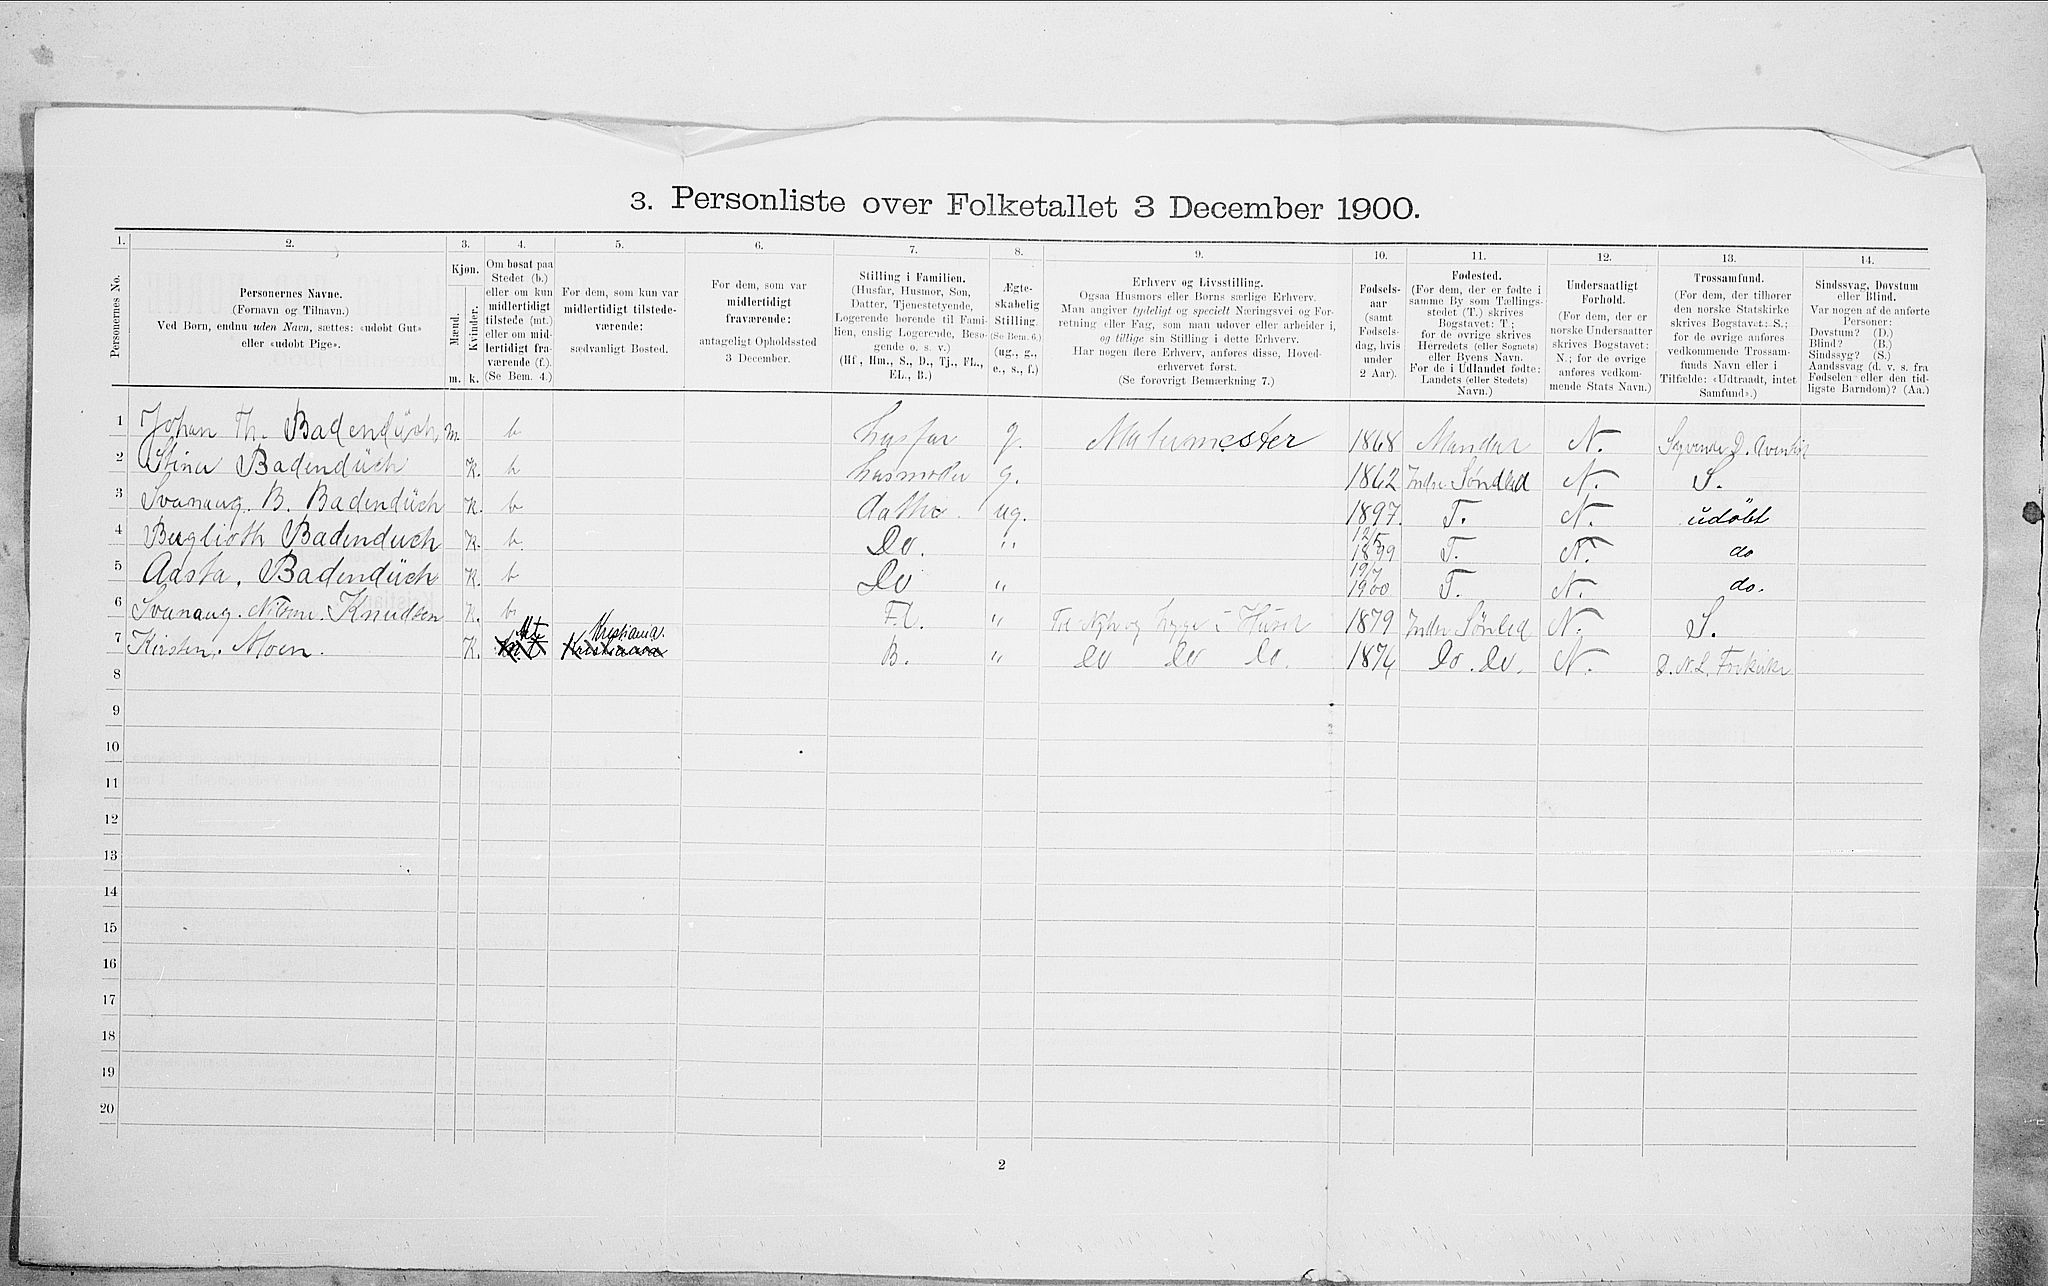 3. Personliste over Folketallet 3 December 1900.
1. 2. 3. 4. 5. 6. 7. 8. 9. 10. 11. 12. 13. 14.
Personernes No.
Personernes Navne.
(Fornavn og Tilnavn.)
Ved Børn, endnu uden Navn, sættes: «udøbt Gut»
eller «udøbt Pige».
Kjøn.
Mænd.
Kvinder.
m. k.
Om bosat paa
Stedet (b.)
eller om kun
midlertidigt
tilstede (mt.)
eller om mid-
lertidigt fra-
værende (f.).
(Se Bem. 4.)
For dem, som kun var
midlertidigt tilstede-
værende:
sædvanligt Bosted.
For dem, som var
midlertidigt
fraværende:
antageligt Opholdssted
3 December.
Stilling i Familien.
(Husfar, Husmor, Søn,
Datter, Tjenestetyende,
Logerende hørende til Fami-
lien, enslig Logerende, Besø-
gende o. s. v.)
(Hf, Hm., S., D., Tj., FL.,
EL., B.)
Ægte-
skabelig
Stilling.
(Se Bem. 6.)
(ug., g.,
e., s., f.)
Erhverv og Livsstilling.
Ogsaa Husmors eller Børns særlige Erhverv.
Man angiver tydeligt og specielt Næringsvei og For-
retning eller Fag, som man udøver eller arbeider i,
og tillige sin Stilling i dette Erhverv.
Har nogen flere Erhverv, anføres disse, Hoved-
erhvervet først.
(Se forøvrigt Bemærkning 7.)
Fødsels-
aar
(samt
Fødsels-
dag, hvis
under
2 Aar).
Fødested.
(For dem, der er fødte i
samme By som Tællings-
stedet (T.) skrives
Bogstavet: T;
for de øvrige skrives
Herredets (eller Sognets)
eller Byens Navn.
For de i Udlandet fødte:
Landets (eller Stedets)
Navn.)
Undersaatligt
Forhold.
(For dem, der er
norske Undersaatter
skrives Bogstavet:
N.; for de øvrige
anføres vedkom-
mende Stats Navn.)
Trossamfund.
(For dem, der tilhører
den norske Statskirke
skrives Bogstavet: S.;
for de øvrige anføres
vedkommende Trossam-
funds Navn eller i
Tilfælde: «Udtraadt, intet
Samfund».)
Sindssvag, Døvstum
eller Blind.
Var nogen af de anførte
Personer:
Døvstum? (D.)
Blind? (B.)
Sindssyg? (S.)
Aandssvag (d. v. s. fra
Fødselen eller den tid-
ligste Barndom)? (Aa.)
1 Johan Th. Badendüch m. b husfar g. Malermester 1868 Mandal N.
2 Stina Badendüch K. b husmoder g. 1862 Indre Søndled N. S.
3 Svanaug. B. Badendüch K. b ug. 1897. T. N. udøbt
4 Badendüch K. b. Do. " 12/5 1899 T. N. do
5 Aasta. Badendüch K. b Do " 19/7 1900 T. N. do.
6 Svanaug. Knudsen K. b. F.L. " i Huset 1879 Indre Sønled N. S.
7 Kirsten. Moen. K. Mt Kristiania. B. " Do Do Do. 1876 Do. Do. N. Frikirke
8
9
10
11
12
13
14
15
16
17
18
19
20
2